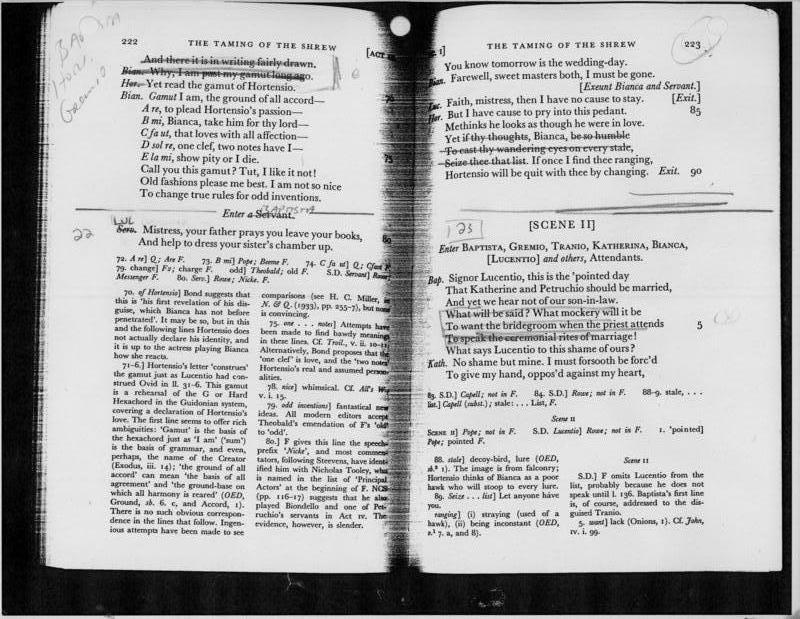 BAPTISTA
Hor.
Gremio
222
THE TAMING OF THE SHREW
[ACT
And there it is in writing fairly drawn.
Bian. Why, I am past my gamut long ago.
Hor. Yet read the gamut of Hortensio.
Bian. Gamut I am, the ground of all accord—
A re, to plead Hortensio's passion—
B mi, Bianca, take him for thy lord—
C fa ut, that loves with all affection—
D sol re, one clef, two notes have I—
75
E la mi, show pity or I die.
Call you this gamut? Tut, I like it not!
Old fashions please me best. I am not so nice
To change true rules for odd inventions.
BAPTISTA
Enter a Servant.
LUC
22
Serv. Mistress, your father prays you leave your books,
80
And help to dress your sister's chamber up.
72. A re] Q; Are F. 73. B mi] Pope; Beeme F. 74. C fa ut] Q; Cfaut F.
79. change] F2; charge F. odd] Theobald; old F. S.D. Servant] Rowe;
Messenger F. 80. Serv.] Rowe; Nicke. F.
70. of Hortensio] Bond suggests that
this is 'his first revelation of his dis-
guise, which Bianca has not before
penetrated'. It may be so, but in this
and the following lines Hortensio does
not actually declare his identity, and
it is up to the actress playing Bianca
how she reacts.
71–6.] Hortensio's letter 'construes'
the gamut just as Lucentio had con-
strued Ovid in ll. 31–6. This gamut
is a rehearsal of the G or Hard
Hexachord in the Guidonian system,
covering a declaration of Hortensio's
love. The first line seems to offer rich
ambiguities: 'Gamut' is the basis of
the hexachord just as 'I am' ('sum')
is the basis of grammar, and even,
perhaps, the name of the Creator
(Exodus, iii. 14); 'the ground of all
accord' can mean 'the basis of all
agreement' and 'the ground-base on
which all harmony is reared' (OED,
Ground, sb. 6. c, and Accord, 1).
There is no such obvious correspon-
dence in the lines that follow. Ingen-
ious attempts have been made to see
comparisons (see H. C. Miller, in
N. & Q. (1933), pp. 255–7), but none
is convincing.
75. one . . . notes] Attempts have
been made to find bawdy meanings
in these lines. Cf. Troil., v. ii. 10–11.
Alternatively, Bond proposes that the
'one clef' is love, and the 'two notes'
Hortensio's real and assumed person-
alities.
78. nice] whimsical. Cf. All's W
v. i. 15.
79. odd inventions] fantastical new
ideas. All modern editors accept
Theobald's emendation of F's 'old'
to 'odd'.
80.] F gives this line the speech-
prefix 'Nicke', and most commen-
tators, following Steevens, have ident-
ified him with Nicholas Tooley, who
is named in the list of 'Principal
Actors' at the beginning of F. NCS
(pp. 116–17) suggests that he also
played Biondello and one of Pet-
ruchio's servants in Act IV. The
evidence, however, is slender.
I]
THE TAMING OF THE SHREW
223
You know tomorrow is the wedding-day.
Bian. Farewell, sweet masters both, I must be gone.
[Exeunt Bianca and Servant.]
Luc. Faith, mistress, then I have no cause to stay. [Exit.]
Hor. But I have cause to pry into this pedant. 85
Methinks he looks as though he were in love.
Yet if thy thoughts, Bianca, be so humble
To cast thy wandering eyes on every stale,
Seize thee that list. If once I find thee ranging,
Hortensio will be quit with thee by changing. Exit. 90
23
[SCENE II]
Enter BAPTISTA, GREMIO, TRANIO, KATHERINA, BIANCA,
[LUCENTIO] and others, Attendants.
Bap. Signor Lucentio, this is the 'pointed day
That Katherine and Petruchio should be married,
And yet we hear not of our son-in-law.
What will be said? What mockery will it be
To want the bridegroom when the priest attends 5
To speak the ceremonial rites of marriage!
What says Lucentio to this shame of ours?
Kath. No shame but mine. I must forsooth be forc'd
To give my hand, oppos'd against my heart,
83. S.D.] Capell; not in F. 84. S.D.] Rowe; not in F. 88–9. stale, . . .
list.] Capell (subst.); stale: . . . List, F.
Scene II
SCENE II] Pope; not in F. S.D. Lucentio] Rowe; not in F. 1. 'pointed]
Pope; pointed F.
88. stale] decoy-bird, lure (OED,
sb.³ 1). The image is from falconry;
Hortensio thinks of Bianca as a poor
hawk who will stoop to every lure.
89. Seize . . . list] Let anyone have
you.
ranging] (i) straying (used of a
hawk), (ii) being inconstant (OED,
v.¹ 7. a, and 8).
Scene II
S.D.] F omits Lucentio from the
list, probably because he does not
speak until l. 136. Baptista's first line
is, of course, addressed to the dis-
guised Tranio.
5. want] lack (Onions, 1). Cf. John,
IV. i. 99.